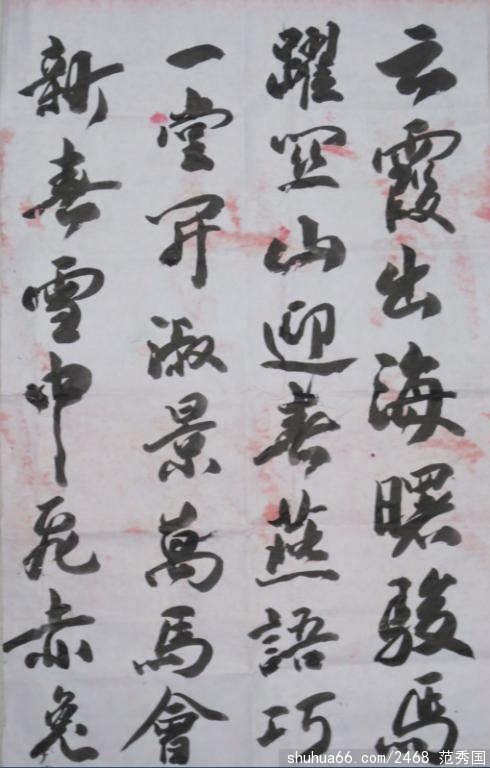 云霞出海曙駿馬
躍関山迎春燕語巧
一堂開淑景萬馬會
新春雪中飛赤兔
shuhua66.com/2468 范秀国